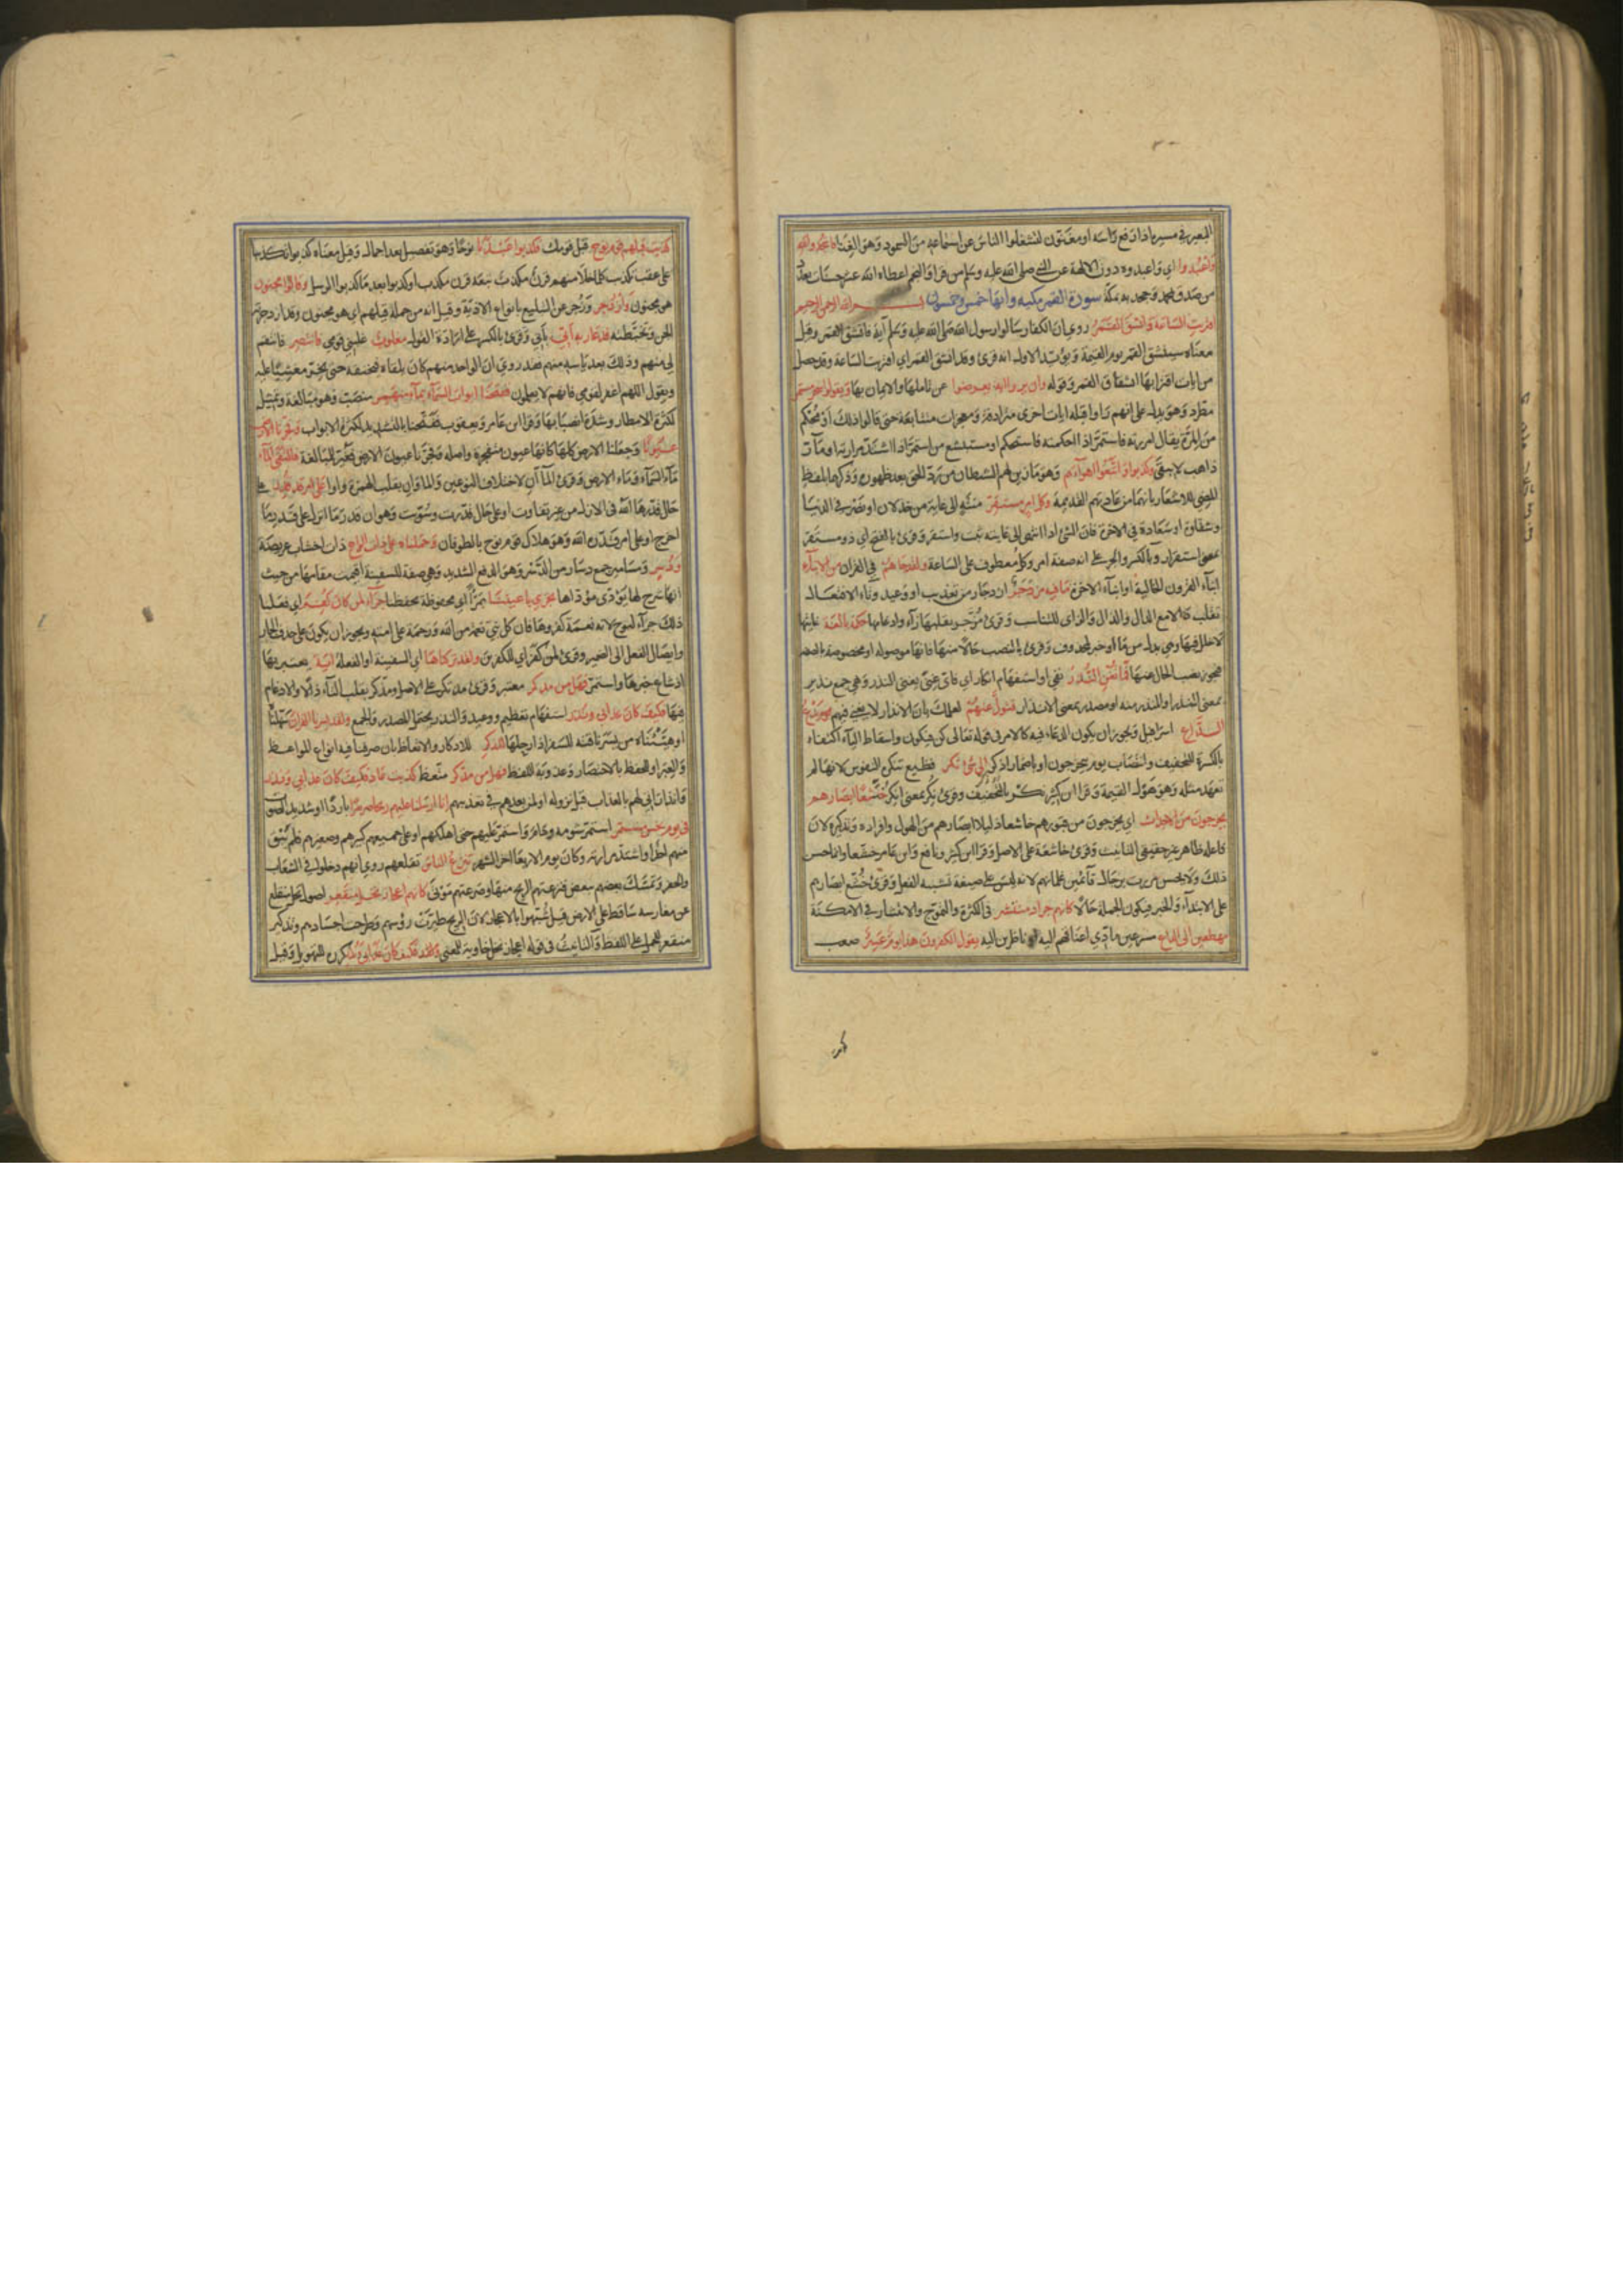 البعير في مسيره اذا رفع رأسه او مغنون لتشغلوا الناس عن استماعه من السمود وهو الغناء فاسجدوا لله
واعبدوا اي واعبدوه دون الالهة عن النبي صلى الله عليه وسلم من قرأ والنجم اعطاه الله عشر حسنات بعدد
من صدق بمحمد وجحد به بمكة سورة القمر مكية وآيها خمس وخمسون بسم الله الرحمن الرحيم
اقتربت الساعة وانشق القمر روي ان الكفار سالوا رسول الله صلى الله عليه وسلم آية فانشق القمر وقيل
معناه سينشق القمر يوم القيمة ويؤيد الاول انه قرئ وقد انشق القمر اي اقتربت الساعة وقد حصل
من ايات اقترابها انشقاق القمر وقوله وان يروا اية يعرضوا عن تاملها والايمان بها ويقولوا سحر مستمر
مطرد وهو يدل على انهم راوا قبله ايات اخرى مترادفة ومعجزات متتابعة حتى قالوا ذلك او محكم
من المرة يقال امررته فاستمر اذا احكمته فاستحكم او مستبشع من استمر اذا اشتد مرارته او مار
ذاهب لا يبقى وكذبوا واتبعوا اهواءهم وهو ما زين لهم الشيطان من رد الحق بعد ظهوره وذكرهما بلفظ
المضي للاشعار بانهما من عادتهم القديمة وكل امر مستقر منته الى غاية من خذلان او نصر في الدنيا
وشقاوة او سعادة في الاخرة فان الشئ اذا انتهى الى غايته ثبت واستقر وقرئ بالفتح اي ذو مستقر
بمعنى استقرار وبالكسر والجر على انه صفة امر وكل معطوف على الساعة ولقد جاءهم في القران من الانباء
انباء القرون الخالية او انباء الاخرة ما فيه مزدجر ازدجار من تعذيب او وعيد وتاء الافتعال
تقلب دالا مع الدال والذال والزاي للتناسب وقرئ مزجر بقلبها زاء وادغامها حكمة بالغة غايتها
لا خلل فيها وهي بدل من ما او خبر لمحذوف وقرئ بالنصب حالا من ما فانها موصولة او مخصوصة بالصفة
فيجوز نصب الحال عنها فما تغن النذر نفي او استفهام انكار اي فاي غنى يغني النذر وهي جمع نذير
بمعنى المنذر او المنذر منه او مصدر بمعنى الانذار فتول عنهم لعلمك بان الانذار لا يغني فيهم يوم يدع
الداع اسرافيل ويجوز ان يكون الدعاء فيه كالامر في قوله تعالى كن فيكون واسقاط الياء اكتفاء
بالكسرة للتخفيف وانتصاب يوم بيخرجون او باضمار اذكر الى شئ نكر فظيع تنكره النفوس لانها لم
تعهد مثله وهو هول القيمة وقرا ابن كثير نكر بالتخفيف وقرئ نكر بمعنى انكر خشعا ابصارهم
يخرجون من الاجداث اي يخرجون من قبورهم خاشعا ذليلا ابصارهم من الهول وافراده وتذكيره لان
فاعله ظاهر غير حقيقي التانيث وقرئ خاشعة على الاصل وقرا ابن كثير ونافع وابن عامر خشعا وانما حسن
ذلك ولا يحسن مررت برجال قائمين غلمانهم لانه ليس على صيغة تشبه الفعل وقرئ خشع ابصارهم
على الابتداء والخبر فيكون الجملة حالا كانهم جراد منتشر في الكثرة والتموج والانتشار في الامكنة
مهطعين الى الداع مسرعين مادي اعناقهم اليه او ناظرين اليه يقول الكفرون هذا يوم عسر صعب
كذبت قبلهم قوم نوح قبل قومك فكذبوا عبدنا نوحا وهو تفصيل بعد اجمال وقيل معناه كذبوا تكذيبا
على عقب تكذيب كلما خلا منهم قرن مكذب تبعه قرن مكذب او كذبوا بعد ما كذبوا الرسل وقالوا مجنون
هو مجنون وازدجر وزجر عن التبليغ بانواع الاذية وقيل انه من جملة قيلهم اي هو مجنون وقد ازدجرته
الجن وتخبطته فدعا ربه اني باني وقرئ بالكسر على ارادة القول مغلوب غلبني قومي فانتصر فانتقم
لي منهم وذلك بعد ياسه منهم فقد روي ان الواحد منهم كان يلقاه فيخنقه حتى يخر مغشيا عليه
ويقول اللهم اغفر لقومي فانهم لا يعلمون ففتحنا ابواب السماء بماء منهمر منصب وهو مبالغة وتمثيل
لكثرة الامطار وشدة انصبابها وقرا ابن عامر ويعقوب ففتحنا بالتشديد لكثرة الابواب وفجرنا الارض
عيونا وجعلنا الارض كلها كانها عيون متفجرة واصله وفجرنا عيون الارض فغير للمبالغة فالتقى الماء
ماء السماء وماء الارض وقرئ الماآن لاختلاف النوعين والماوان بقلب الهمزة واوا على امر قد قدر على
حال قدرها الله في الازل من غير تفاوت او على حال قدرت وسويت وهو ان قدر ما انزل على قدر ما
اخرج او على امر قدره الله وهو هلاك قوم نوح بالطوفان وحملناه على ذات الواح ذات اخشاب عريضة
ودسر ومسامير جمع دسار من الدسر وهو الدفع الشديد وهي صفة للسفينة اقيمت مقامها من حيث
انها شرح لها يؤدى مؤداها تجري باعيننا بمرأى اي محفوظة بحفظنا جزاء لمن كان كفر اي فعلنا
ذلك جزاء لنوح لانه نعمة كفروها فان كل نبي نعمة من الله ورحمة على امته ويجوز ان يكون على حذف الجار
وايصال الفعل الى الضمير وقرئ لمن كفر اي للكفرين ولقد تركناها اي السفينة او الفعلة اية يعتبر بها
اذ شاع خبرها واستمر فهل من مدكر معتبر وقرئ مذتكر على الاصل ومذكر بقلب التاء ذالا والادغام
فيها فكيف كان عذابي ونذر استفهام تعظيم ووعيد والنذر يحتمل المصدر والجمع ولقد يسرنا القران سهلناه
او هيئناه من يسر ناقته للسفر اذا رحلها للذكر للادكار والاتعاظ بان صرفنا فيه انواع المواعظ
والعبر او للحفظ بالاختصار وعذوبة اللفظ فهل من مدكر متعظ كذبت عاد فكيف كان عذابي ونذر
وانذاراتي لهم بالعذاب قبل نزوله او لمن بعدهم في تعذيبهم انا ارسلنا عليهم ريحا صرصرا باردا او شديد الصوت
في يوم نحس مستمر استمر شومه وعام واستمر عليهم حتى اهلكهم او على جميعهم كبيرهم وصغيرهم فلم يبق
منهم احدا او اشتد مرارته وكان يوم الاربعا اخر الشهر تنزع الناس تقلعهم روي انهم دخلوا في الشعاب
والحفر وتمسك بعضهم ببعض فنزعتهم الريح منها وصرعتهم موتى كانهم اعجاز نخل منقعر اصول نخل منقلع
عن مغارسه ساقط على الارض قيل شبهوا بالاعجاز لان الريح طيرت رؤسهم وطرحت اجسادهم وتذكير
منقعر للحمل على اللفظ والتانيث في قوله اعجاز نخل خاوية للمعنى فكيف كان عذابي ونذر كرره للتهويل وقيل